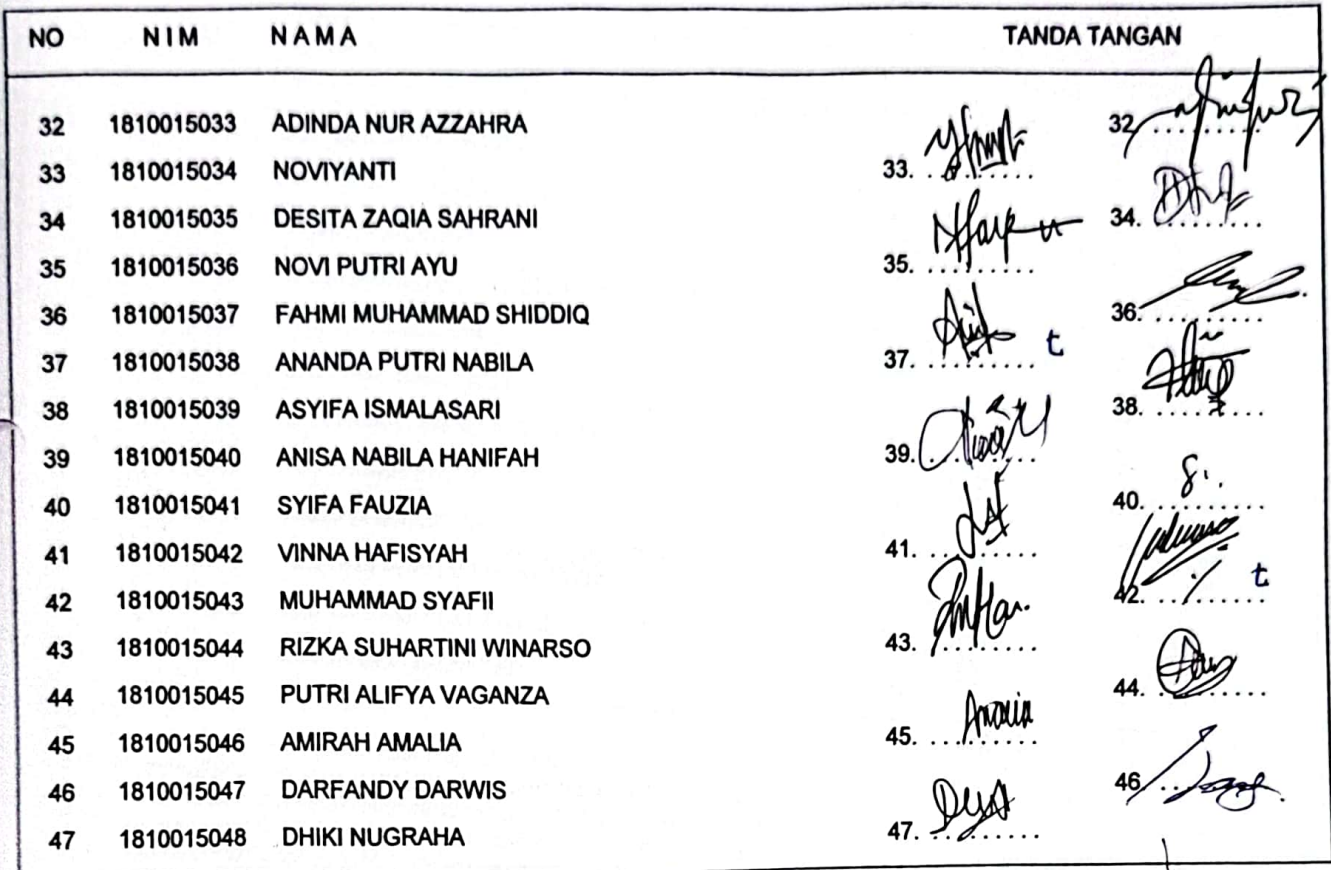 NO NIM NAMA TANDA TANGAN
32 1810015033 ADINDA NUR AZZAHRA 32. .........
33 1810015034 NOVIYANTI 33. .........
34 1810015035 DESITA ZAQIA SAHRANI 34. .........
35 1810015036 NOVI PUTRI AYU 35. .........
36 1810015037 FAHMI MUHAMMAD SHIDDIQ 36. .........
37 1810015038 ANANDA PUTRI NABILA 37. ......... t
38 1810015039 ASYIFA ISMALASARI 38. .........
39 1810015040 ANISA NABILA HANIFAH 39. .........
40 1810015041 SYIFA FAUZIA 40. .........
41 1810015042 VINNA HAFISYAH 41. .........
42 1810015043 MUHAMMAD SYAFII 42. ......... t
43 1810015044 RIZKA SUHARTINI WINARSO 43. .........
44 1810015045 PUTRI ALIFYA VAGANZA 44. .........
45 1810015046 AMIRAH AMALIA 45. .........
46 1810015047 DARFANDY DARWIS 46. .........
47 1810015048 DHIKI NUGRAHA 47. .........